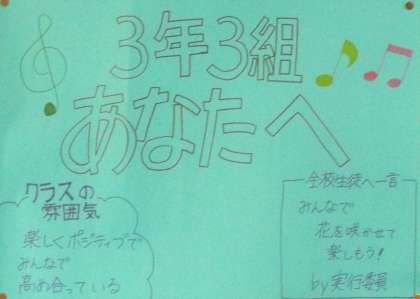 3年3組
あなたへ
クラスの
雰囲気
楽しくポジティブで
みんなで
高め合っている
全校生徒へ一言
みんなで
花を咲かせて
楽しもう!
by実行委員